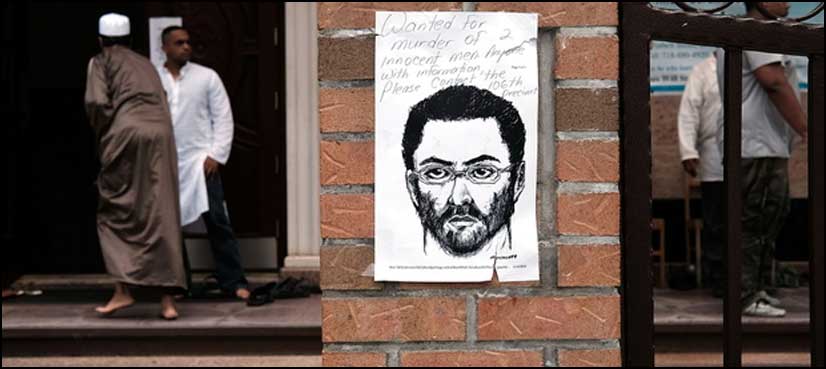 Wanted for
murder of 2
innocent men Anyone
with information
Please Contact the
106th
Precinct